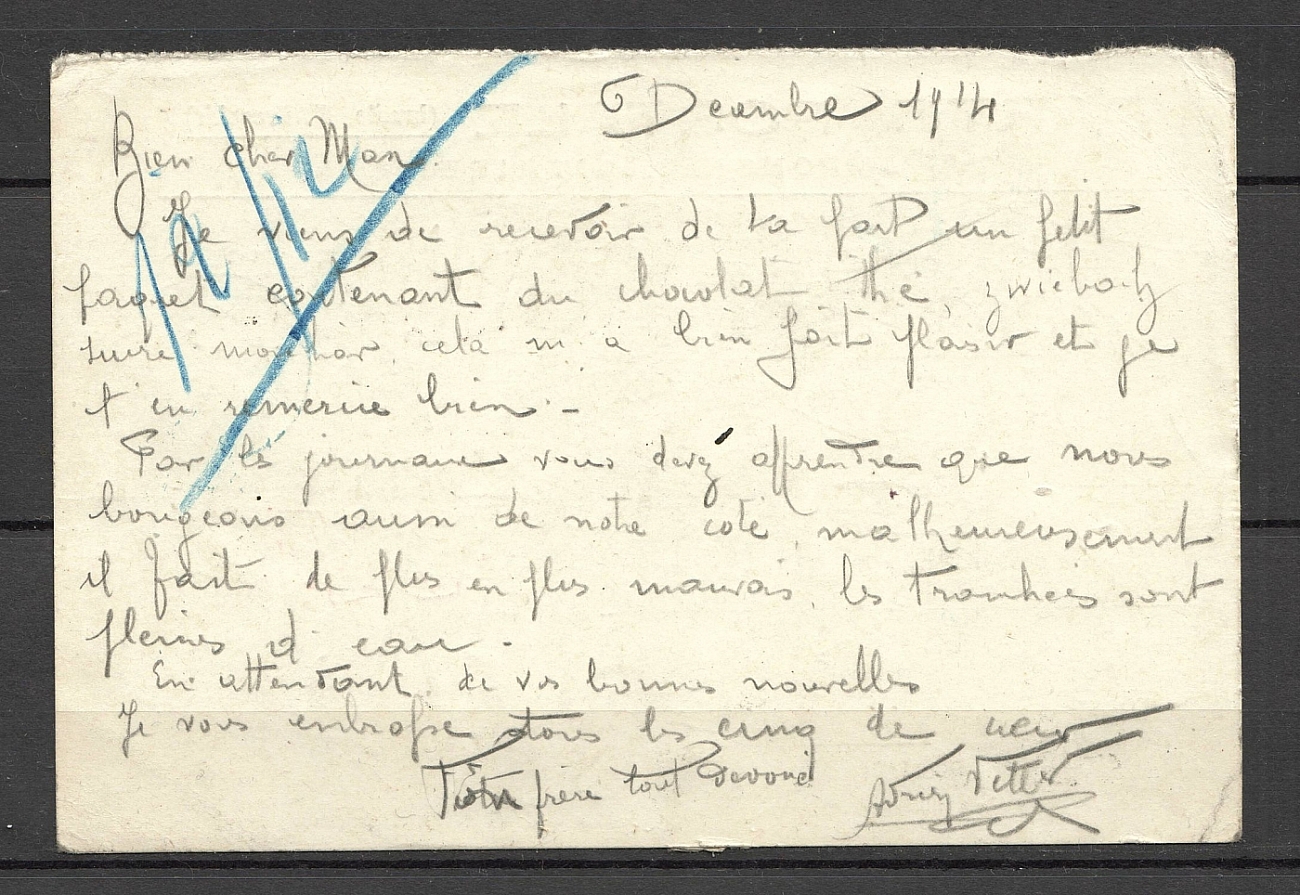 6 Decembre 1914
Bien cher Max.
Je viens de recevoir de ta part un petit
paquet contenant du chocolat, thé, zwieback
sucre cela m'a bien fait plaisir et je
t'en remercie bien. -
Par les journaux vous devez apprendre que nous
bougeons aussi de notre coté, malheureusement
il fait de plus en plus mauvais, les tranchées sont
pleines d'eau.
En attendant de vos bonnes nouvelles
Je vous embrasse tous les cinq de
Votre frère tout devoué
Vetter
19/12